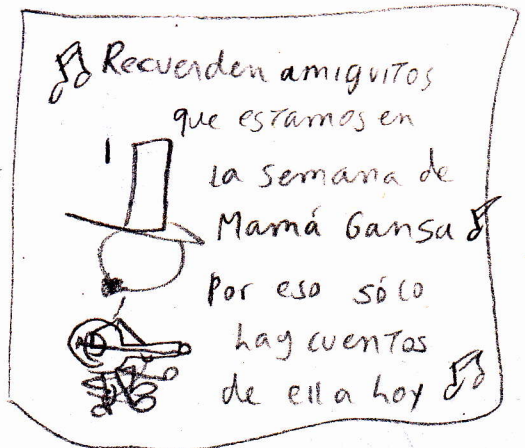 Recuerden amiguitos
que estamos en
la semana de
Mamá Gansa
Por eso sólo
hay cuentos
de ella hoy